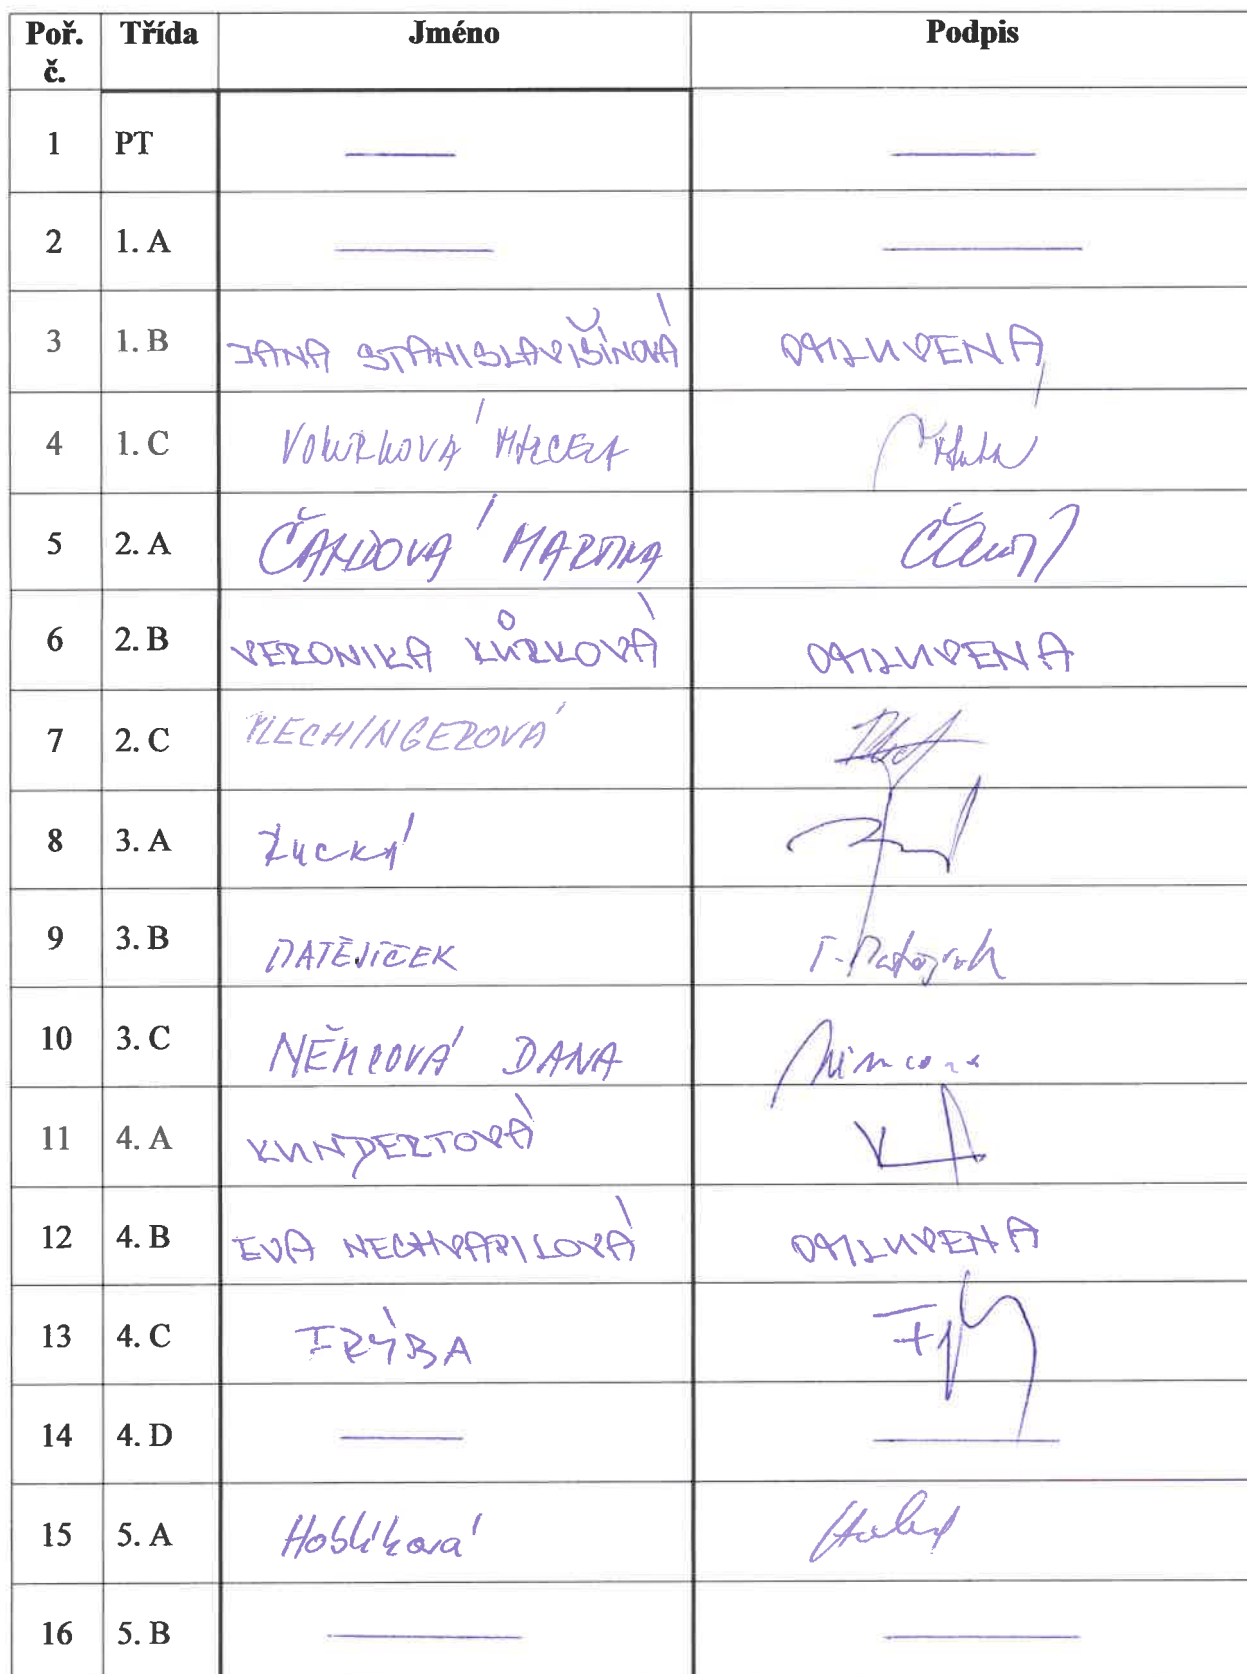 Poř. č. Třída Jméno Podpis
1 PT
2 1. A
3 1. B JANA STANISLAVIŠÍNOVÁ OMLUVENA
4 1. C VOKURKOVÁ MARCELA
5 2. A ČANDOVÁ MARTINA
6 2. B VERONIKA KŮRKOVÁ OMLUVENA
7 2. C PLECHINGEROVÁ
8 3. A
9 3. B MATĚJÍČEK
10 3. C NĚMCOVÁ DANA Němcová
11 4. A KUNDERTOVÁ
12 4. B EVA NECHVAPILOVÁ OMLUVENA
13 4. C FRÝBA
14 4. D
15 5. A
16 5. B